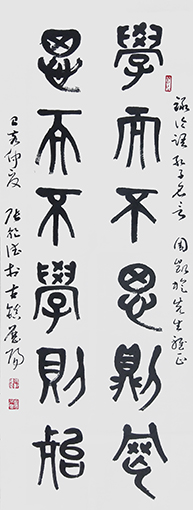 錄論語孔子名言 周凱旋先生雅正
學而不思則罔
思而不學則殆
己亥仲夏 張 於古